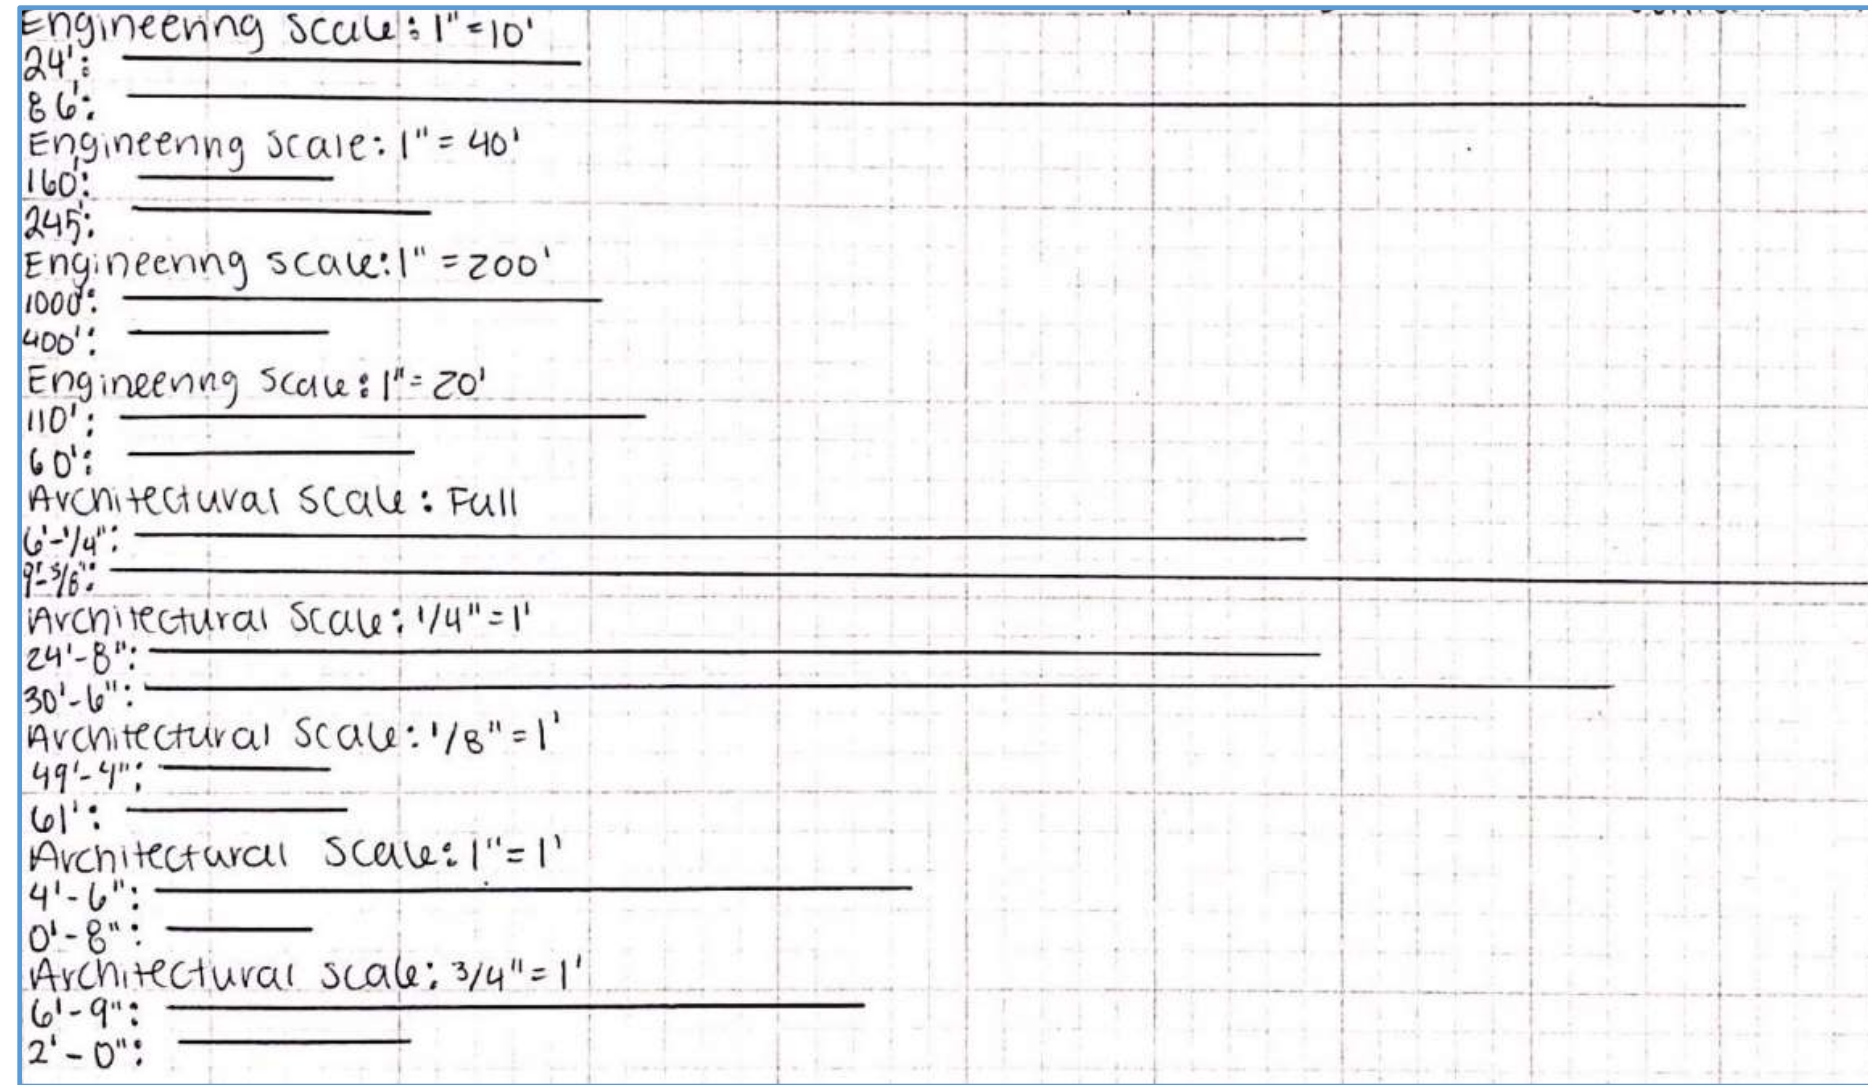 Engineering Scale: 1"=10'
24':
86':
Engineering Scale: 1"=40'
160':
245':
Engineering scale: 1"=200'
1000':
400':
Engineering Scale: 1"=20'
110':
60':
Architectural Scale: Full
6'-1/4":
9'-5/8":
Architectural Scale: 1/4"=1'
24'-8":
30'-6":
Architectural Scale: 1/8"=1'
49'-4":
61':
Architectural Scale: 1"=1'
4'-6":
0'-8":
Architectural scale: 3/4"=1'
6'-9":
2'-0":